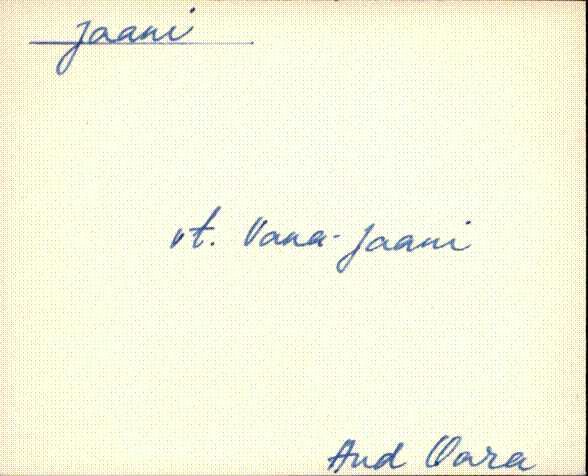 Jaani
vt. Vana-Jaani
And Vara